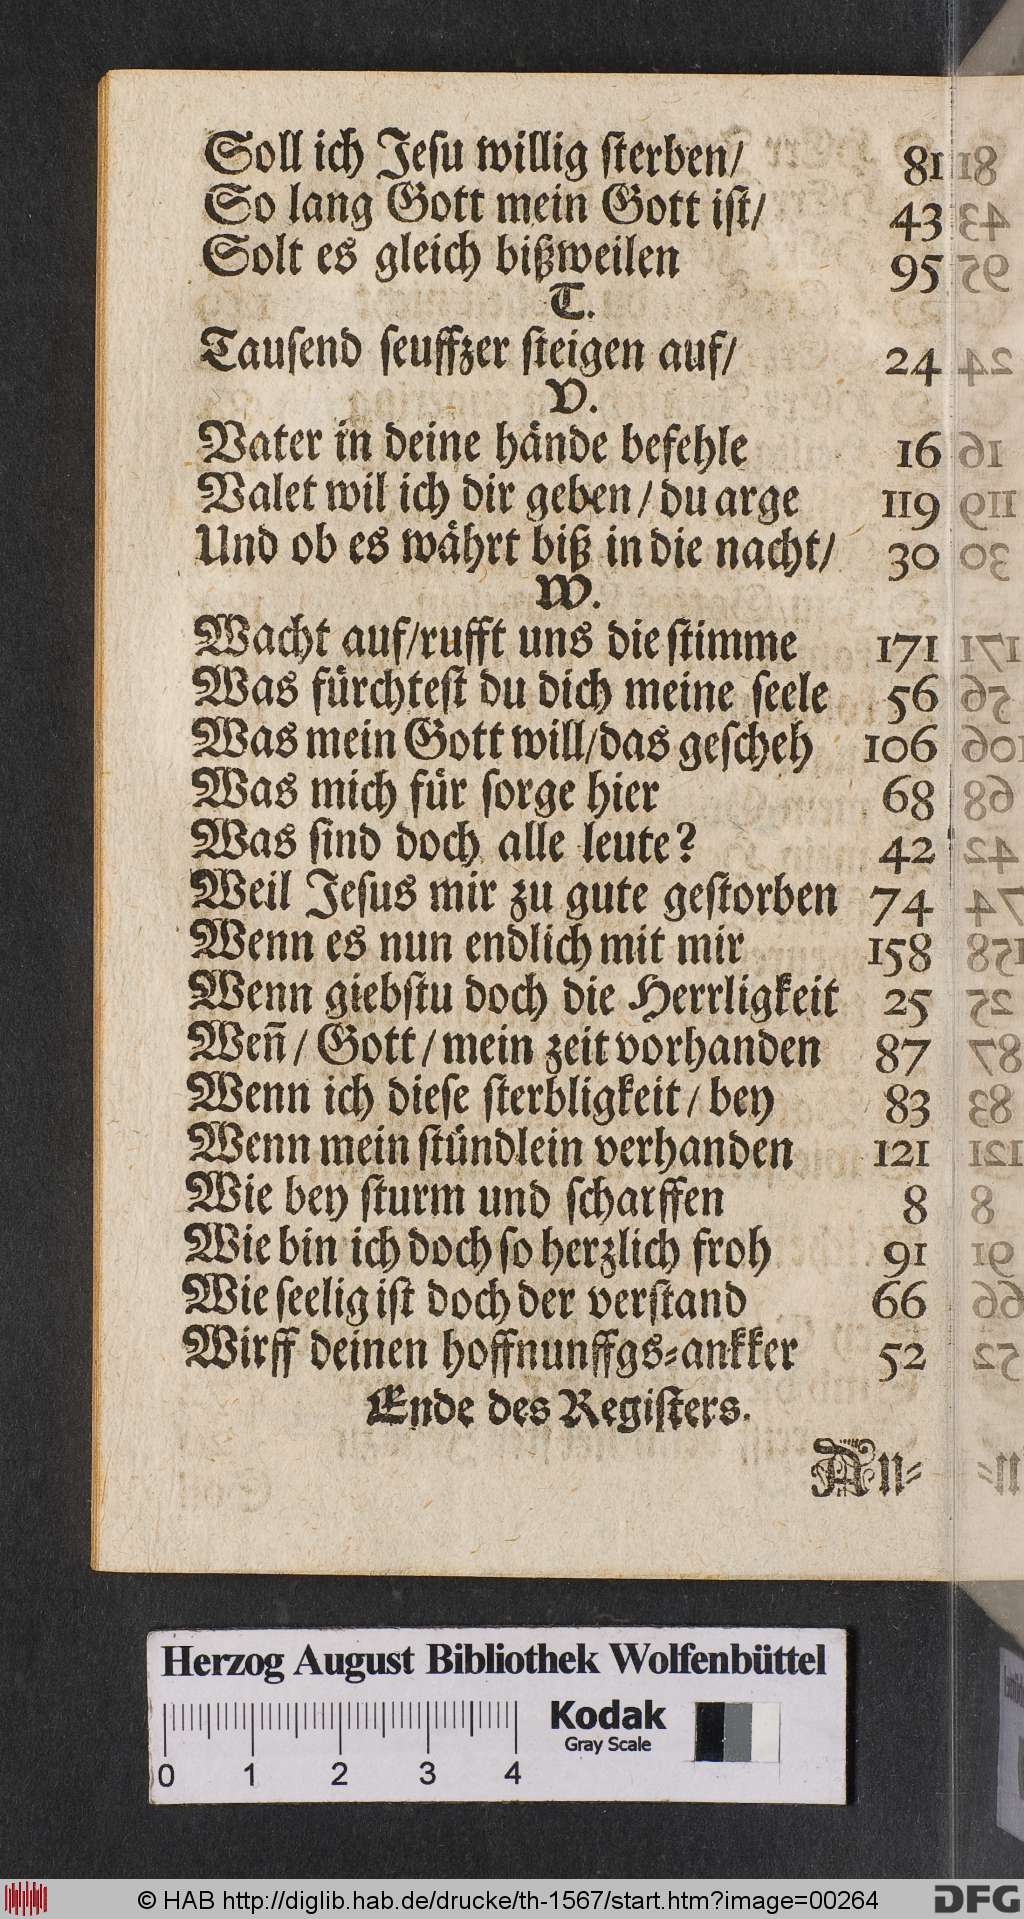 Soll ich Jesu willig sterben/ 81
So lang Gott mein Gott ist/ 43
Solt es gleich bißweilen 95
T.
Tausend seuffzer steigen auf/ 24
V.
Vater in deine hände befehle 16
Valet wil ich dir geben/ du arge 119
Und ob es währt biß in die nacht/ 30
W.
Wacht auf/rufft uns die stimme 171
Was fürchtest du dich meine seele 56
Was mein Gott will/das gescheh 106
Was mich für sorge hier 68
Was sind doch alle leute? 42
Weil Jesus mir zu gute gestorben 74
Wenn es nun endlich mit mir 158
Wenn giebstu doch die Herrligkeit 25
Weñ/ Gott/ mein zeit vorhanden 87
Wenn ich diese sterbligkeit/ bey 83
Wenn mein stündlein verhanden 121
Wie bey sturm und scharffen 8
Wie bin ich doch so herzlich froh 91
Wie seelig ist doch der verstand 66
Wirff deinen hoffnunffgs-ankker 52
Ende des Registers.
An-
Herzog August Bibliothek Wolfenbüttel
Kodak
Gray Scale
0 1 2 3 4
© HAB http://diglib.hab.de/drucke/th-1567/start.htm?image=00264
DFG